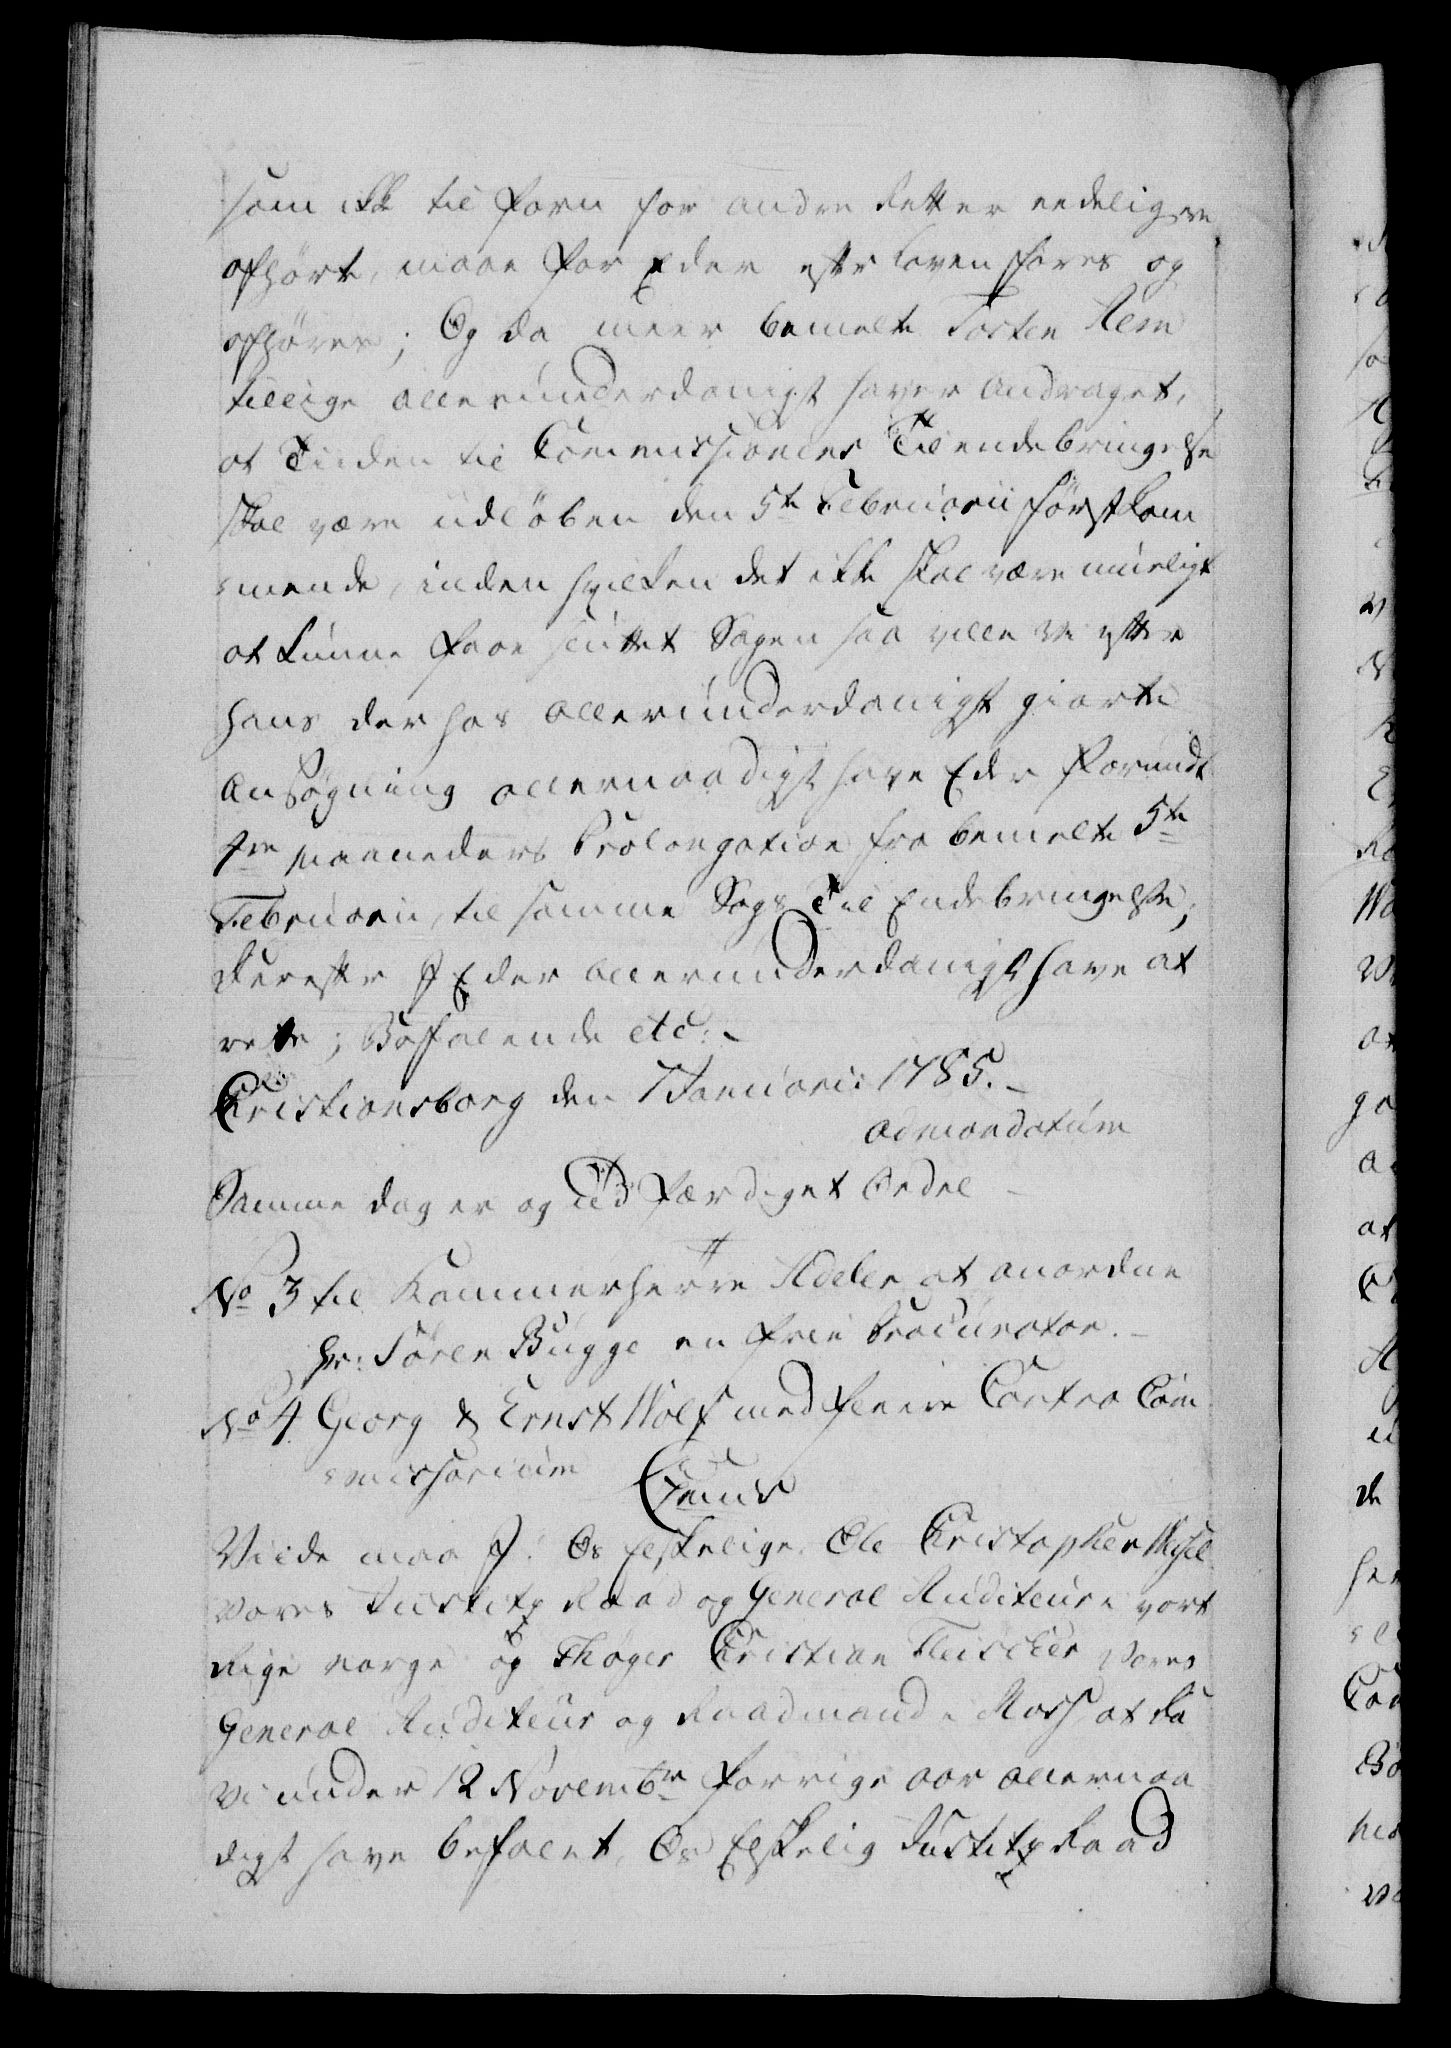 som ikke til forn for andre Retter eedeligen
afhørt, maae for Eder efter Loven føres og
afhøres; Og da meer bemelte Tosten Rem
tillige allerunderdanigst haver Andraget,
at Tiiden til Commissionens Til endebringelse
skal være udløben den 5te Februarii førstkom
mende, inden hvilken det ikke skal være mueligt
at kunne faae sluttet Sagen saa ville Vi efter
hans derhos allerunderdanigst giorte
Ansøgning allernaadigst have Eder forundt
4re Maaneders Prolongation fra bemelte 5te
Februarii, til samme Sags Til Endebringelse;
Derefter I Eder allerunderdanigst have at
rette; Befalende etc:
Christiansborg den 7 Januarii 1785.
ad mandatum
Samme dag er og udfærdiget Ordre
No 3 til Kammerherre Adeler at anordne
Hr: Sören Bugge en frie Procurator.
No 4 Georg & Ernst Wolf med fleere Contra Com
missarium Cunr
Viide maa I. Os elskelige Ole Christopher Wessel
Vores Justitz Raad og General Auditeur i vort
Rige Norge og Thøger Christian Fleischer Vores
General Auditeur og Raadmand i Moss, at da
Vi under 12 Novembr forrige aar allernaa
digst have befalet, Os Elskelig Justitz Raad